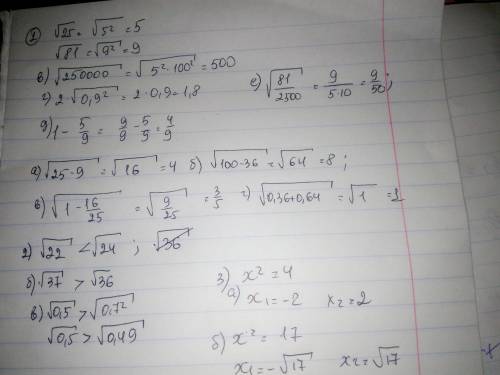 ① √25 = √5² = 5
√81 = √9² = 9
в) √250000 = √5²·100² = 500
г) 2·√0,9² = 2·0,9 = 1,8
е) √81/2500 = 9/5·10 = 9/50;
д) 1 - 5/9 = 9/9 - 5/9 = 4/9
а) √25-9 = √16 = 4 б) √100-36 = √64 = 8;
в) √1-16/25 = √9/25 = 3/5 г) √0,36+0,64 = √1 = 1
2) √22 < √24 ; √36
б) √37 > √36
в) √0,5 > √0,7²
√0,5 > √0,49
3) x² = 4
а) x₁ = -2 x₂ = 2
б) x² = 17
x₁ = -√17 x₂ = √17